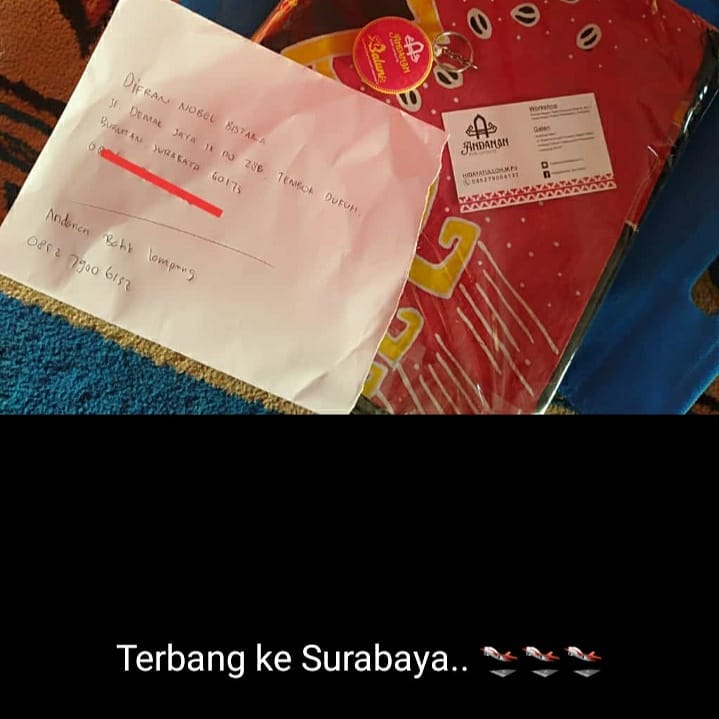 DIFRAN NOBEL BISTARA
Jl. DEMAK JAYA
NO 28B TEMBOK DUKUH.
BUBUTAN SURABAYA 60173
Andanan Batik Lampung
0852 7900 6132
ANDANAN
Workshop
Galeri
ANDANAN
HIDAYATULLOH,M.Pd
085279006132
Terbang ke Surabaya..